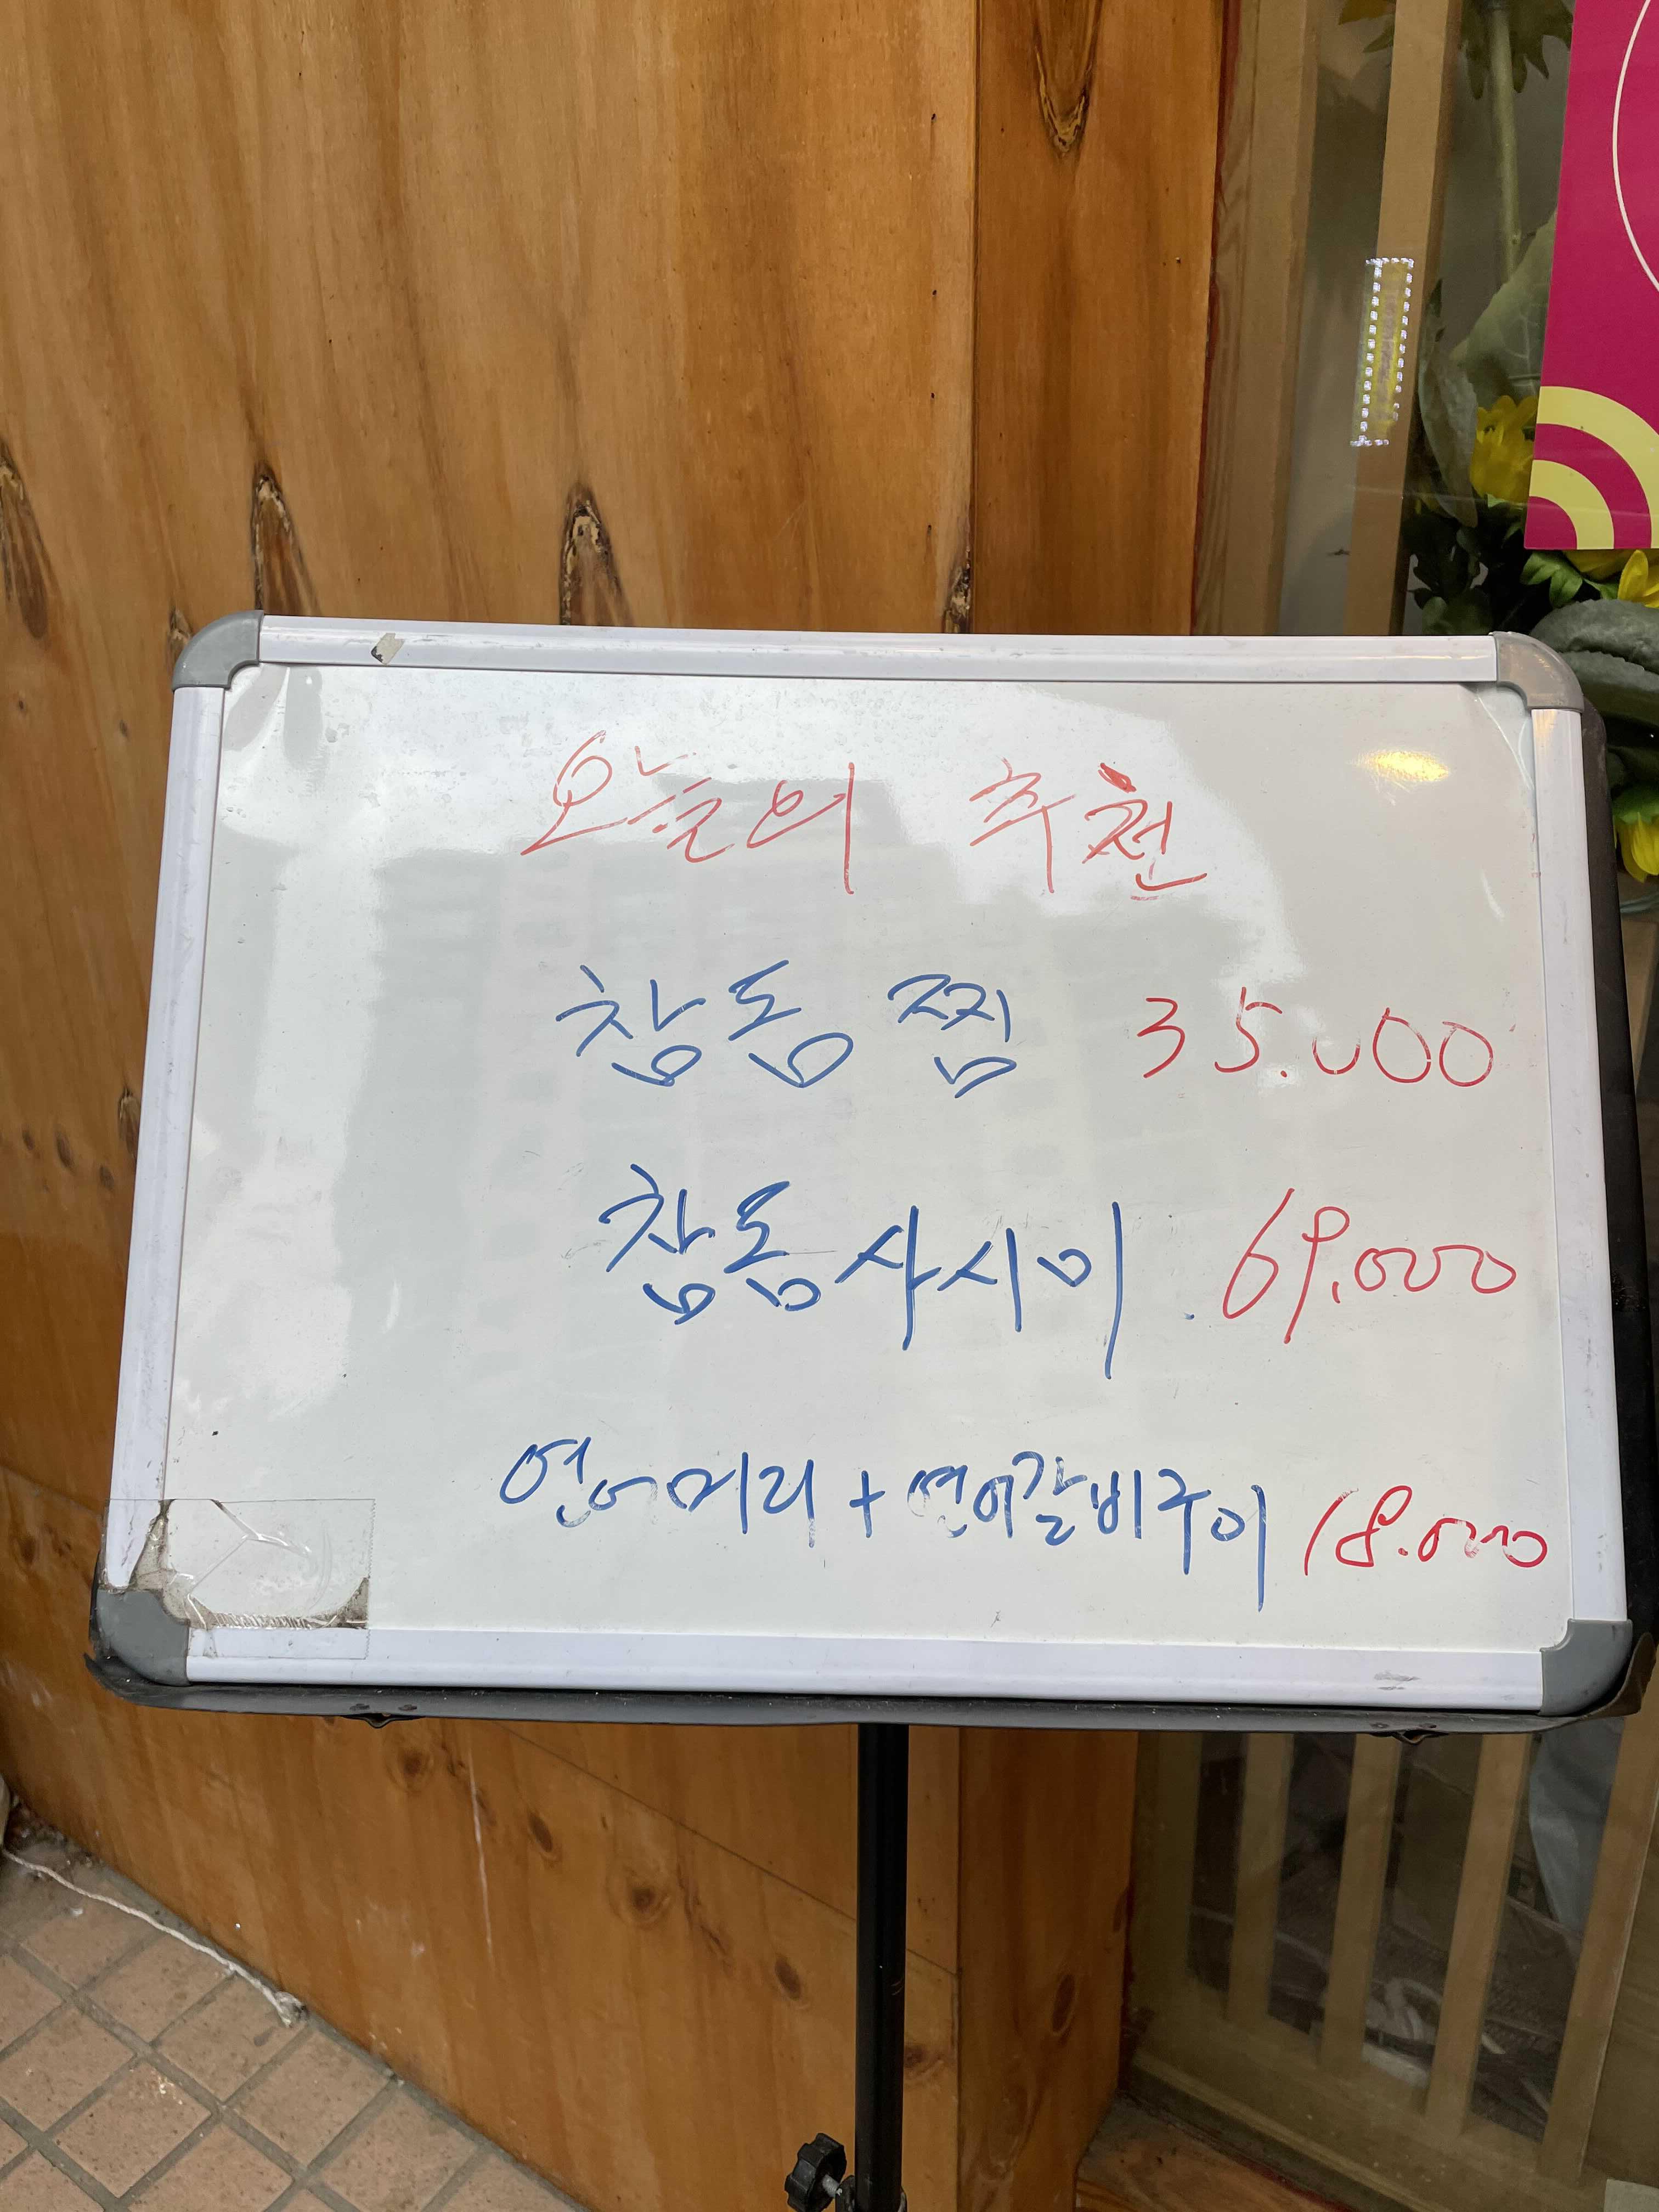 오늘의 추천
참돔찜 35.000
참돔사시미 69.000
연어머리+연어갈비구이 18.000